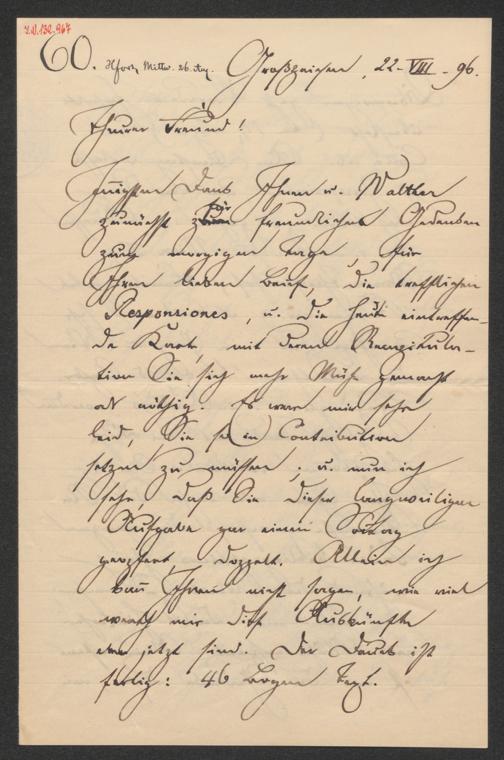 I.N. 132.967
60. Hförg Mittw. 26. Aug. Großzaißen, 22-VIII-96.
Theurer Freund!
Innigsten Dank Ihnen u. Walther
zunächst für freundliches Gedenken
zum morgigen Tage, für
Ihren lieben Brief, die trefflichen
Responsiones, u. die heute eintreffen-
de Karte, mit deren Recapitula-
tion Sie sich mehr Mühe gemacht
als nöthig. Es war mir sehr
leid, Sie so (in) Contribution
setzen zu müssen; u. nun ich
sehe, daß Sie dieser langweiligen
Aufgabe gar einen Sonntag
geopfert, doppelt. Allein ich
kann Ihnen nicht sagen, wie viel
werth mir diese Auskünfte
eben jetzt sind. Der Druck ist
fertig: 46 Bogen Text.